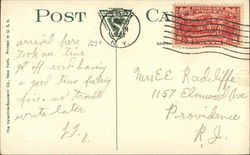 POST
N.Y.
arrived here
took our time
got off road having
a good time feeling
fine. no trouble
write later
Mrs E E Radcliffe
1157 Elmwood Ave
Providence
R.I.
The Valentine-Souvenir Co., New York. Printed in U.S.A.